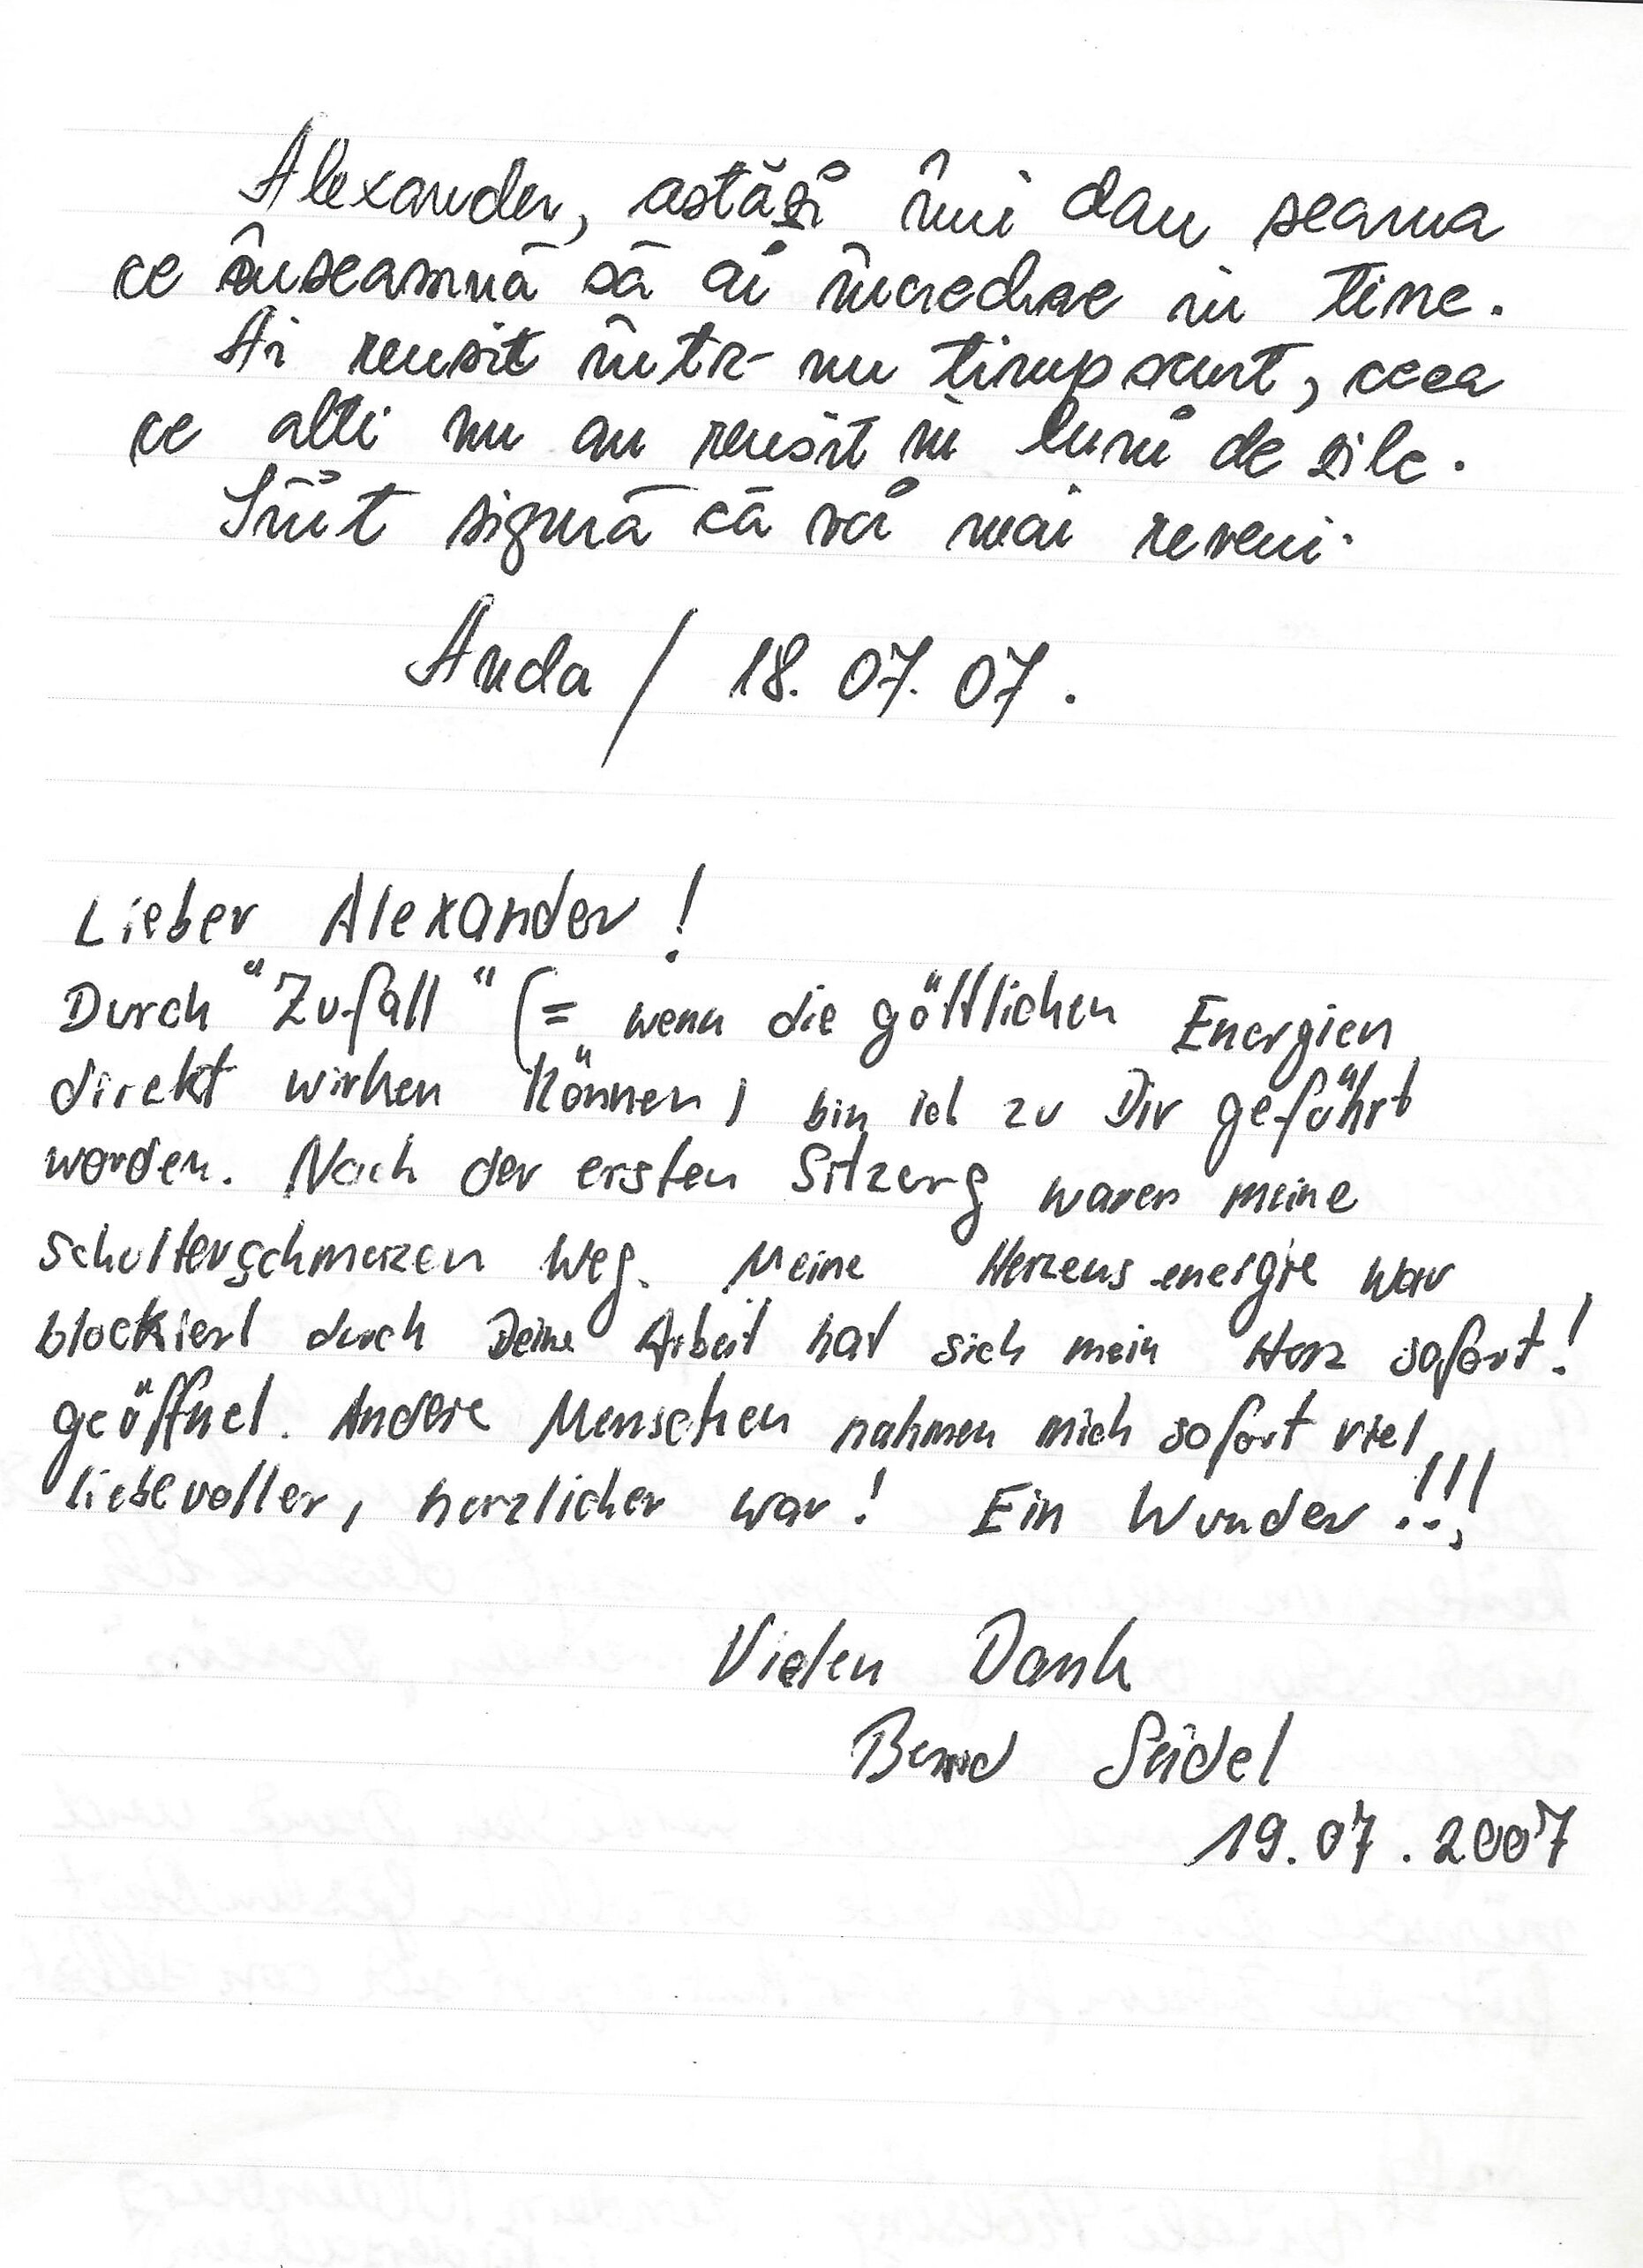 Alexander, astăzi îmi dau seama
ce înseamnă să ai încredere in tine.
Ai reusit într-un timp scurt, ceea
ce alti nu au reusit in luni de zile.
Sînt sigură că vei mai reveni.
Anda / 18.07.07.
Lieber Alexander!
Durch "Zufall" (= wenn die göttlichen Energien
direkt wirken können) bin ich zu Dir geführt
worden. Nach der ersten Sitzung waren meine
Schulterschmerzen weg. Meine Herzensenergie war
blockiert durch Deine Arbeit hat sich mein Herz sofort!
geöffnet. Andere Menschen nahmen mich sofort viel
liebevoller, herzlicher war! Ein Wunder!!!
Vielen Dank
Bernd Seidel
19.07.2007